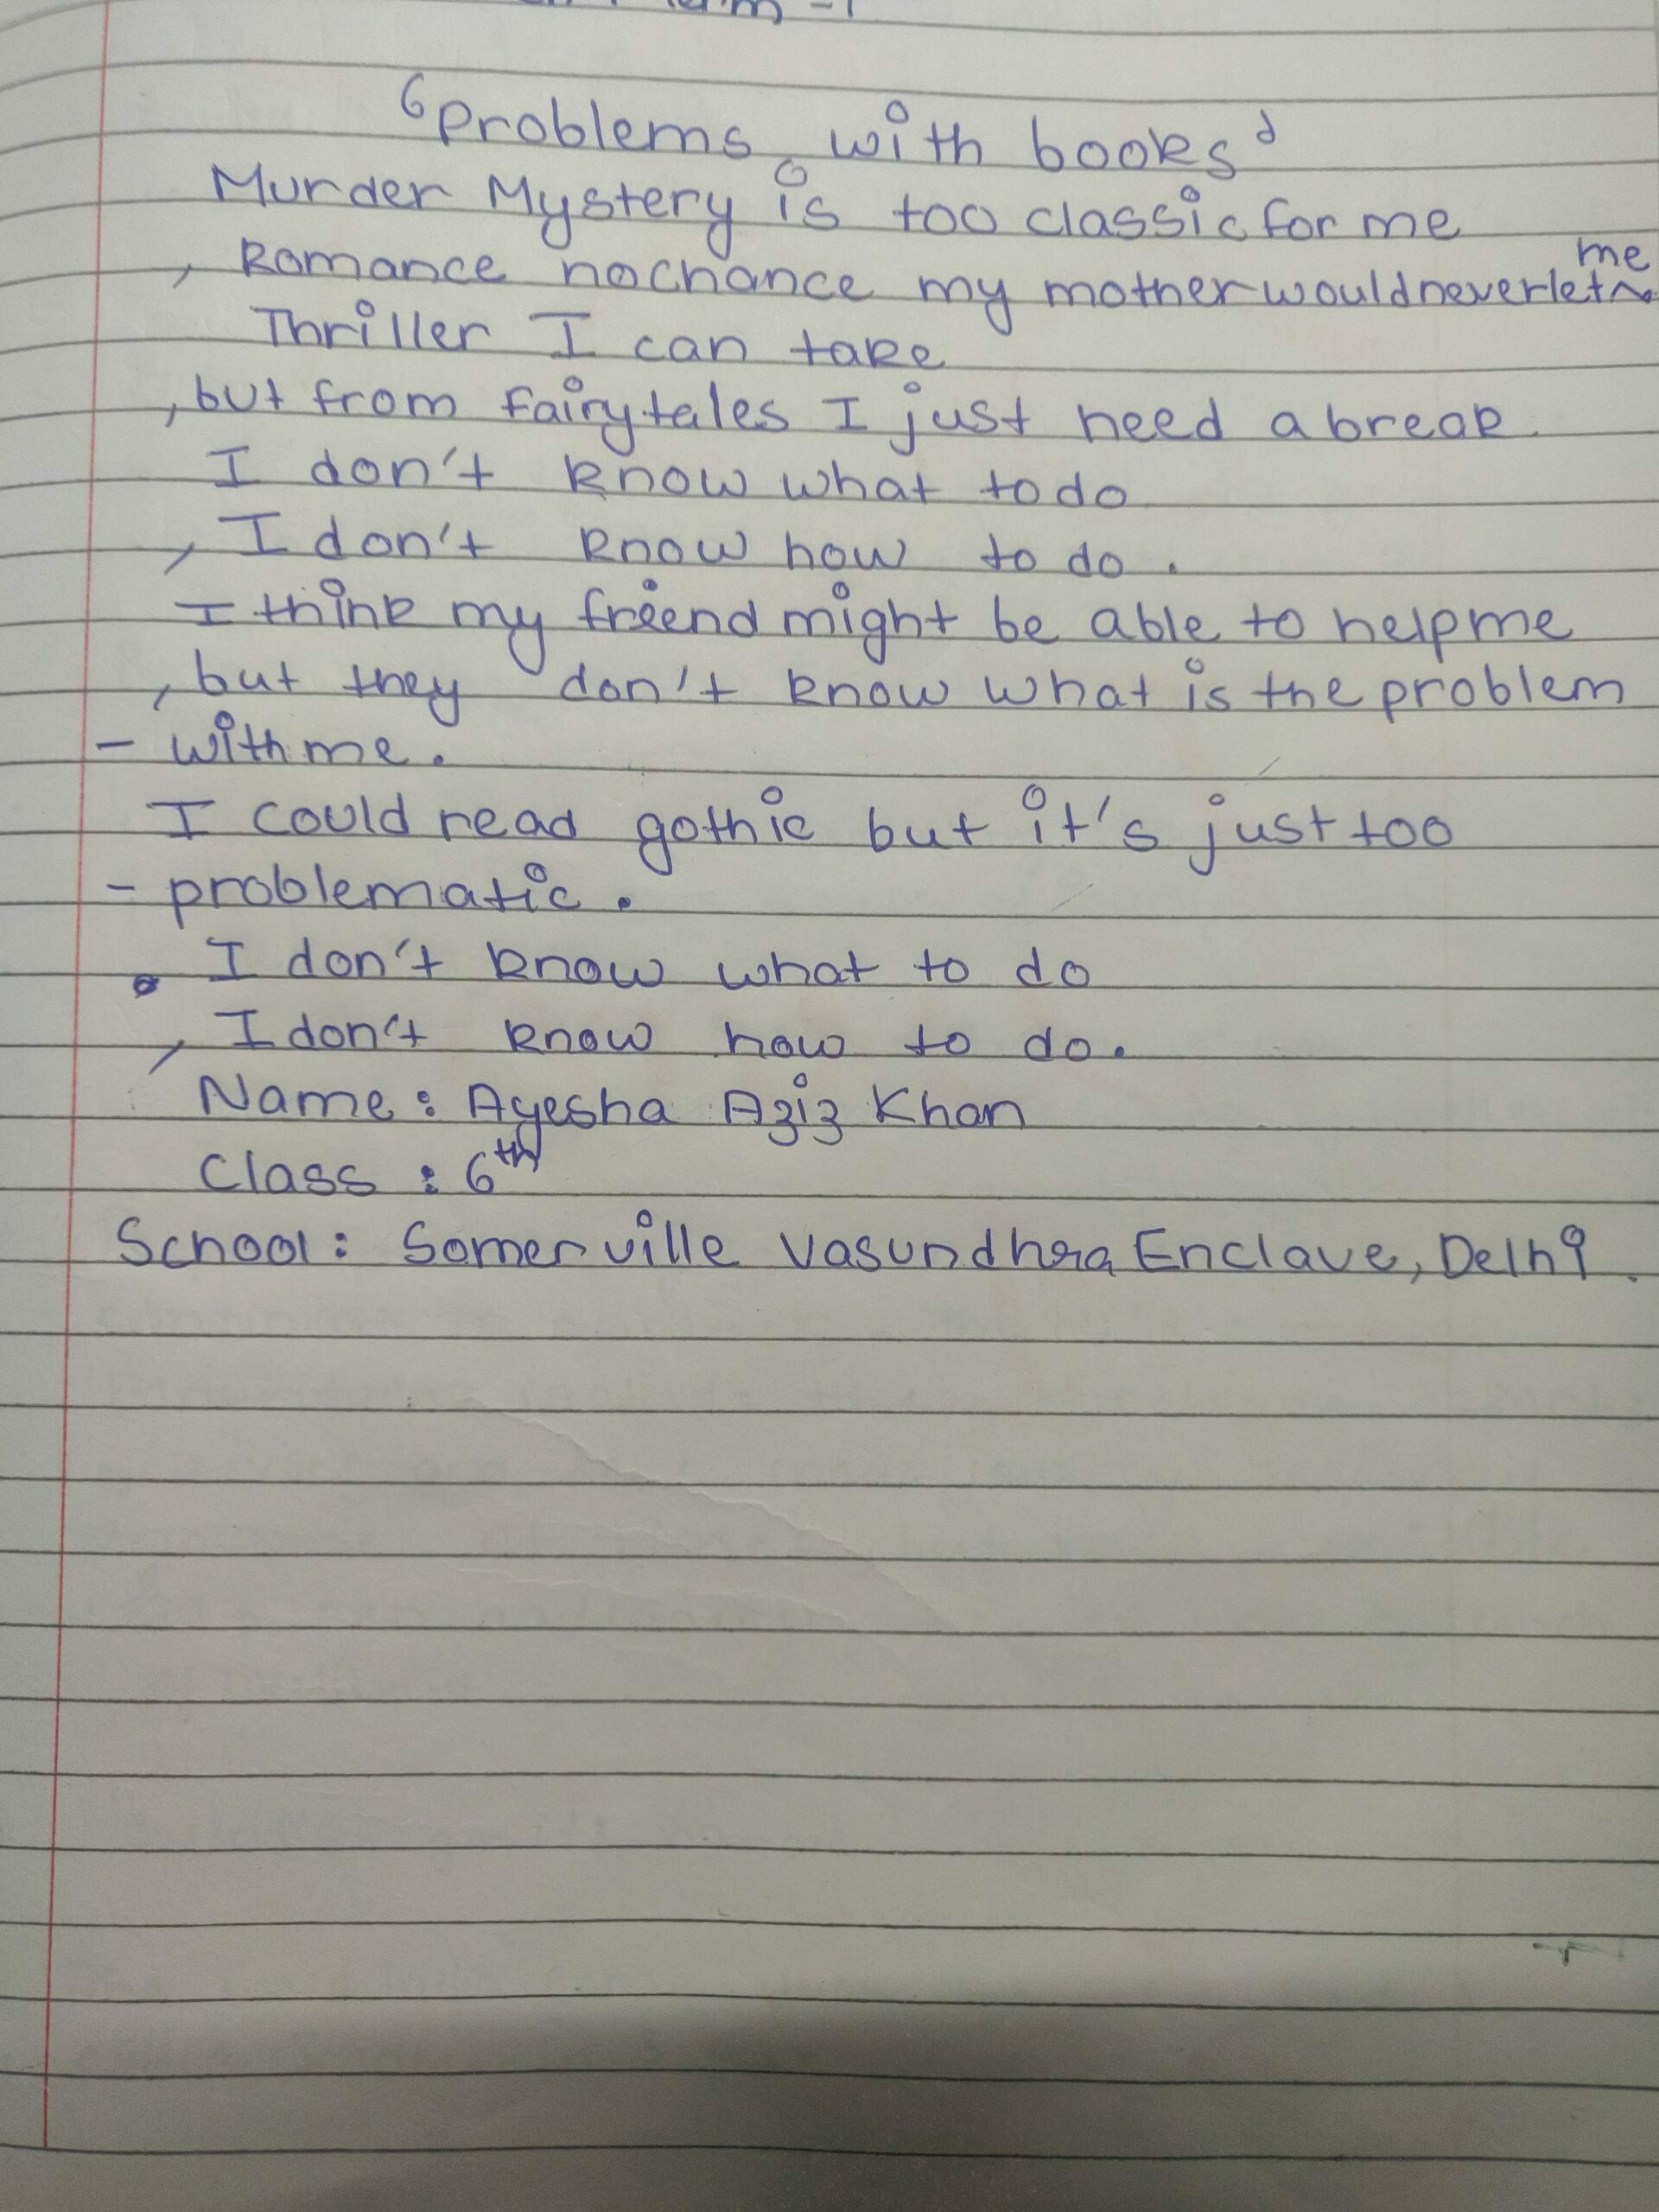 Term -1
'Problems with books'
Murder Mystery is too classic for me
, Romance no chance my mother would never let me
Thriller I can take
, but from fairytales I just need a break
I don't know what to do
, I don't know how to do.
I think my friend might be able to help me
, but they don't know what is the problem
- with me.
I could read gothic but it's just too
- problematic.
I don't know what to do
, I don't know how to do.
Name: Ayesha Aziz Khan
Class : 6th
School: Somerville Vasundhra Enclave, Delhi.